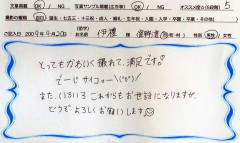 文章掲載 OK / NG 写真サンプル掲載(生徒等) OK / NG オススメ度(5段階) 5
撮影の種類 誕生・七五三・十三祝・成人・婚礼・生年祝・入園・入学・卒園・卒業・その他( )
ご記入日 2009年9月20日 お名前 伊禮 男性 女性
とってもかわいく撮れて、満足です。
でーじ サイコォー＼(^o^)/
また、いろいろ これからもお世話になりますが、
どうぞ よろしくお願いします